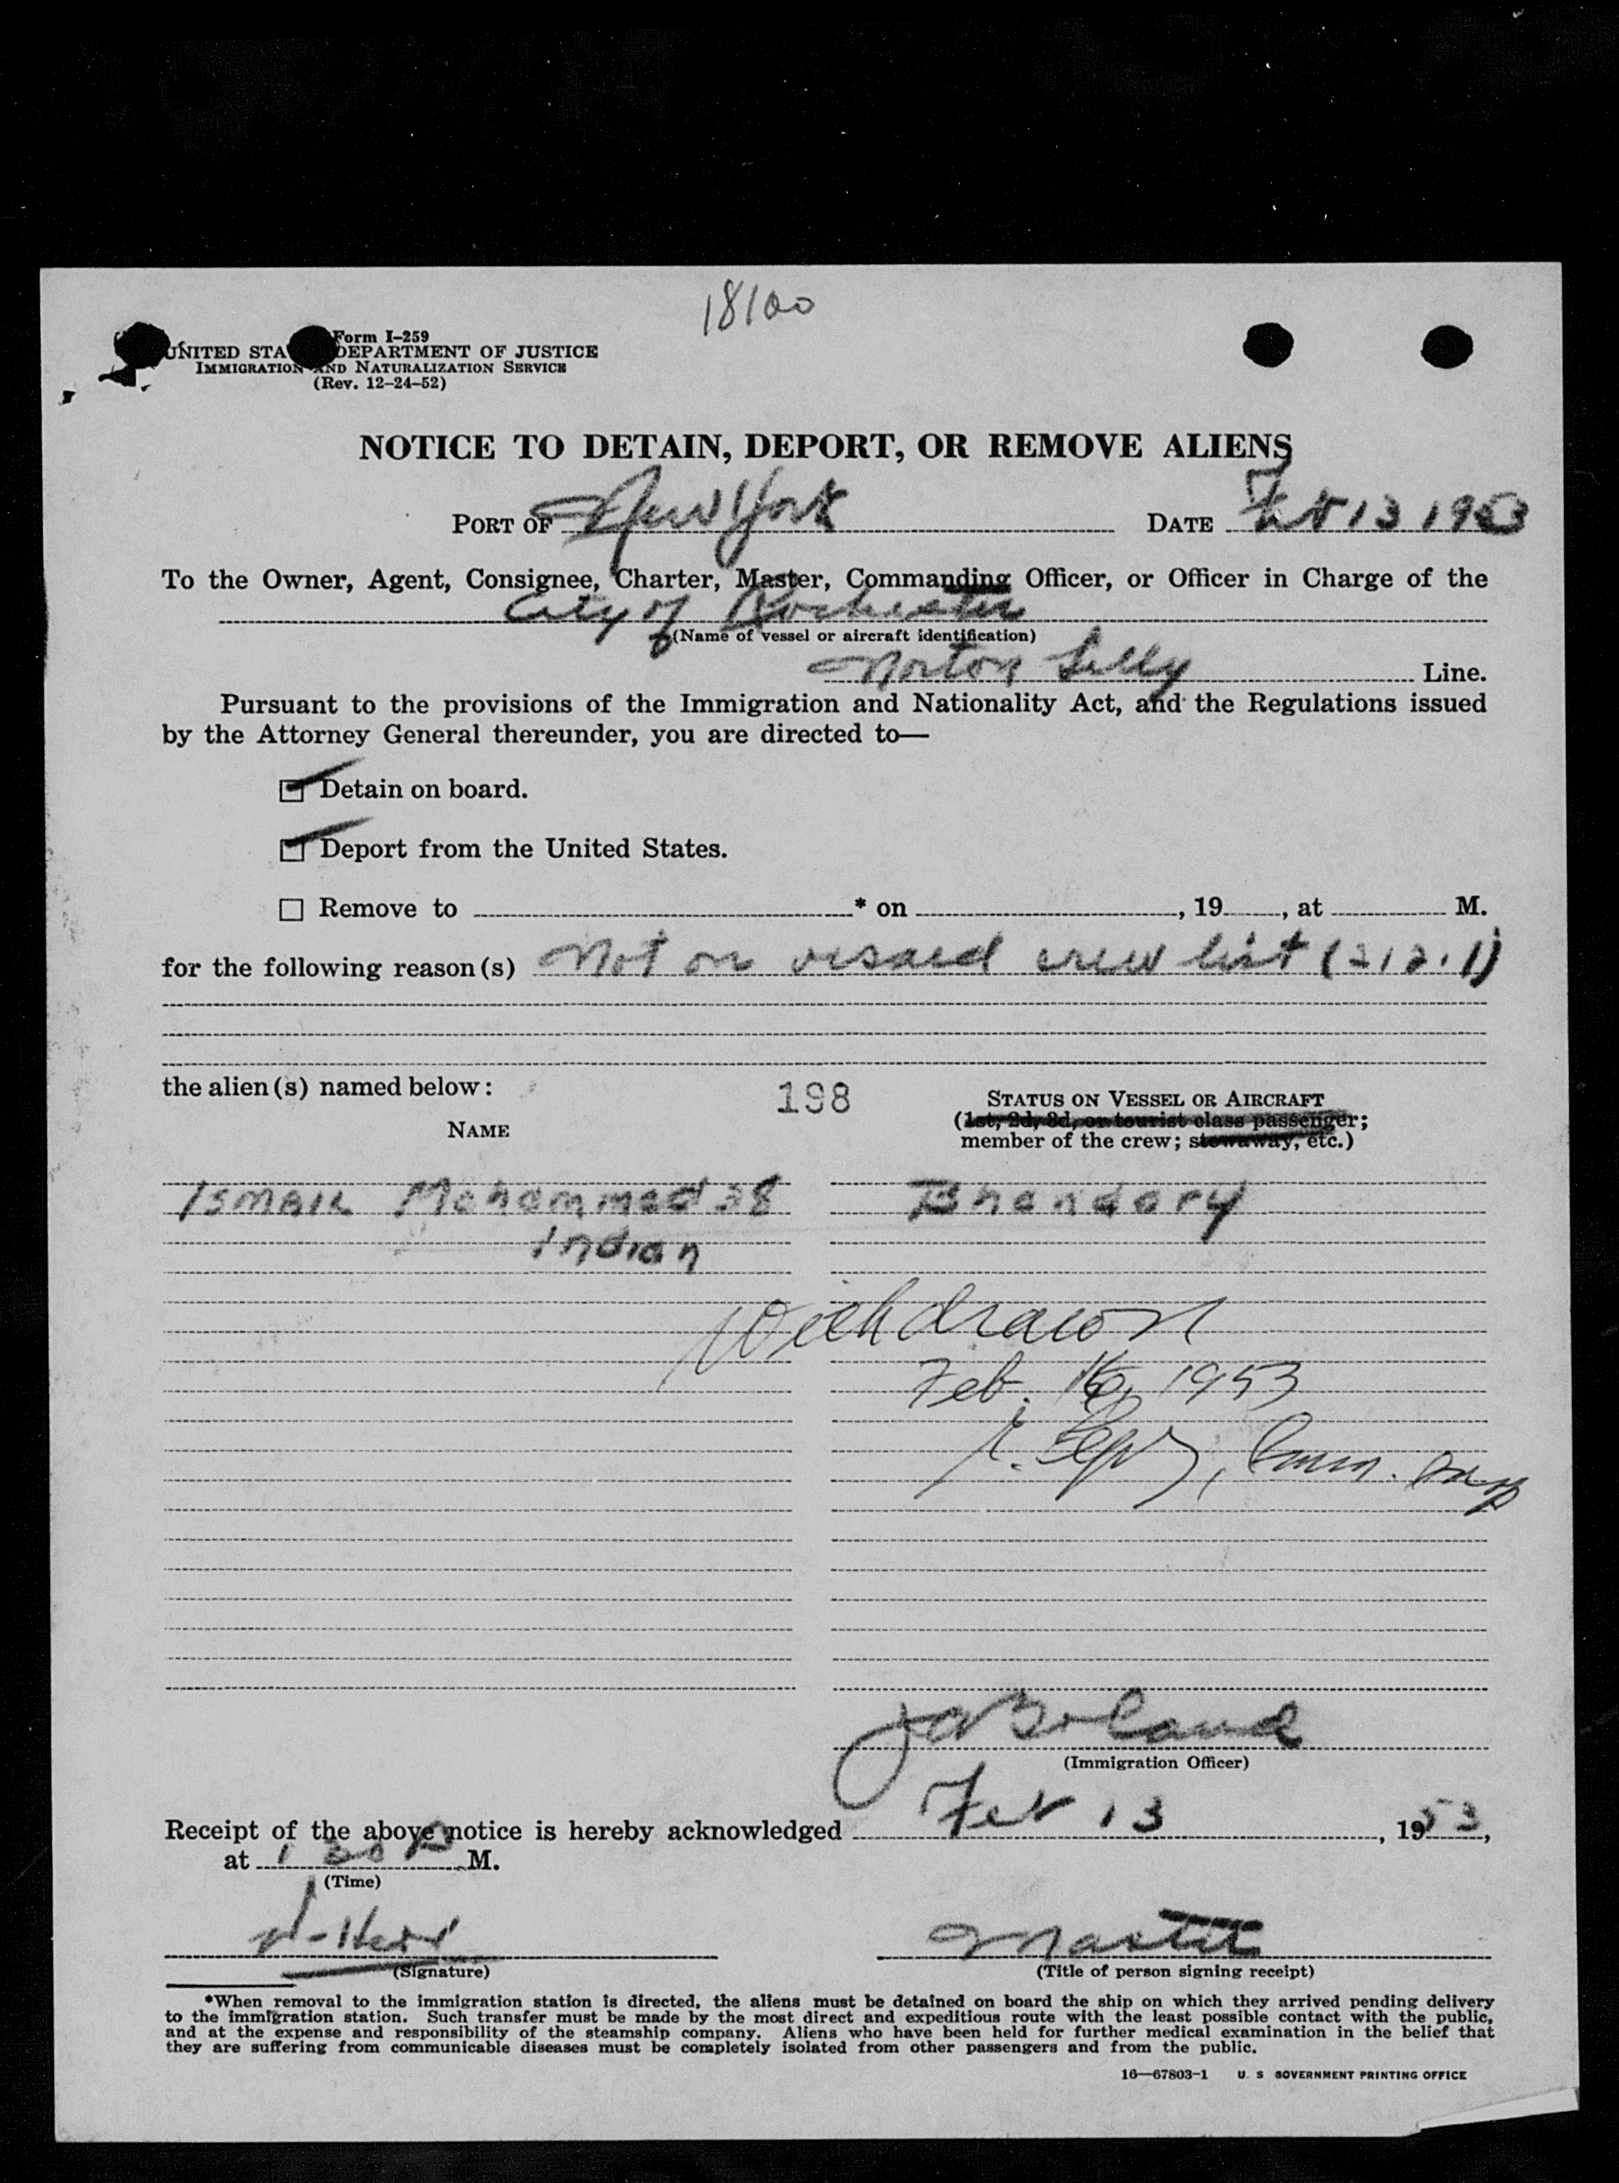 18100
Form I-259
UNITED STA DEPARTMENT OF JUSTICE
IMMIGRATION AND NATURALIZATION SERVICE
(Rev. 12-24-52)
NOTICE TO DETAIN, DEPORT, OR REMOVE ALIENS
PORT OF New York DATE Feb 13 1953
To the Owner, Agent, Consignee, Charter, Master, Commanding Officer, or Officer in Charge of the
City of Rochester
(Name of vessel or aircraft identification)
Norton Lilly Line.
Pursuant to the provisions of the Immigration and Nationality Act, and the Regulations issued
by the Attorney General thereunder, you are directed to—
Detain on board.
Deport from the United States.
Remove to * on , 19 , at M.
for the following reason(s) Not on visaed crew list (212.1)
the alien(s) named below:
198
NAME
STATUS ON VESSEL OR AIRCRAFT
(1st, 2d, 3d, or tourist class passenger;
member of the crew; stowaway, etc.)
Ismail Mohammed 38 Bhandary
Indian
Withdrawn
Feb. 16, 1953
Imm. Insp
(Immigration Officer)
Receipt of the above notice is hereby acknowledged Feb 13 , 1953,
at 1 30 P M.
(Time)
Master
(Signature) (Title of person signing receipt)
*When removal to the immigration station is directed, the aliens must be detained on board the ship on which they arrived pending delivery
to the immigration station. Such transfer must be made by the most direct and expeditious route with the least possible contact with the public,
and at the expense and responsibility of the steamship company. Aliens who have been held for further medical examination in the belief that
they are suffering from communicable diseases must be completely isolated from other passengers and from the public.
16—67803-1 U. S. GOVERNMENT PRINTING OFFICE